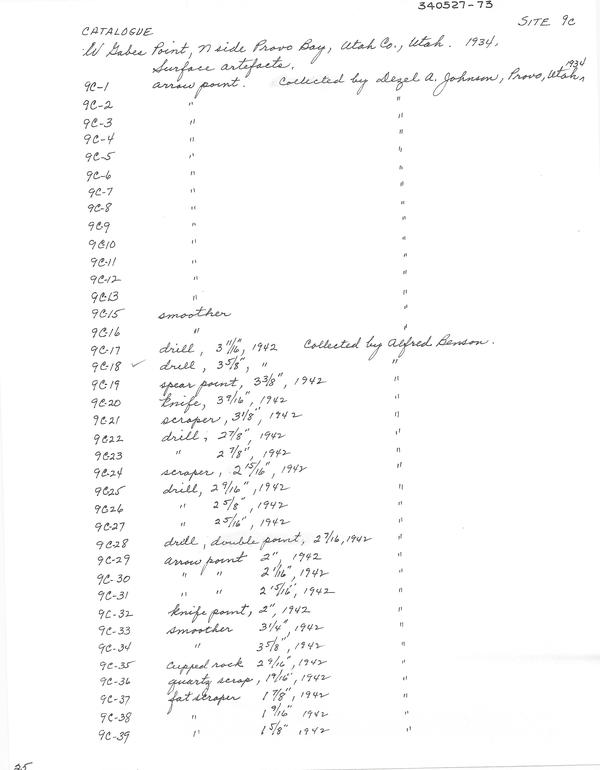 340527-73
SITE 9C
CATALOGUE
W Gabes Point, N side Provo Bay, Utah Co., Utah. 1934.
Surface artefacts. 1934
9C-1 arrow point. Collected by Dezel A. Johnson, Provo, Utah,
9C-2 " "
9C-3 " "
9C-4 " "
9C-5 " "
9C-6 " "
9C-7 " "
9C-8 " "
9C9 " "
9C10 " "
9C-11 " "
9C-12 " "
9C13 " "
9C-15 smoother "
9C-16 " "
9C-17 drill, 3 11/16", 1942 Collected by Alfred Benson.
9C-18 ✓ drill, 3 5/8", " "
9C-19 spear point, 3 3/8", 1942 "
9C-20 knife, 3 9/16", 1942 "
9C21 scraper, 3 1/8", 1942 "
9C22 drill, 2 7/8", 1942 "
9C23 " 2 7/8", 1942 "
9C-24 scraper, 2 15/16", 1942 "
9C25 drill, 2 9/16", 1942 "
9C26 " 2 5/8", 1942 "
9C-27 " 2 5/16", 1942 "
9C-28 drill, double point, 2 7/16, 1942 "
9C-29 arrow point 2", 1942 "
9C-30 " " 2 1/16", 1942 "
9C-31 " " 2 5/16", 1942 "
9C-32 knife point, 2", 1942 "
9C-33 smoother 3 1/4", 1942 "
9C-34 " 3 5/8", 1942 "
9C-35 cupped rock 2 9/16", 1942 "
9C-36 quartz scrap, 1 9/16", 1942 "
9C-37 fat scraper 1 7/8", 1942 "
9C-38 " 1 9/16" 1942 "
9C-39 " 1 5/8" 1942 "
25